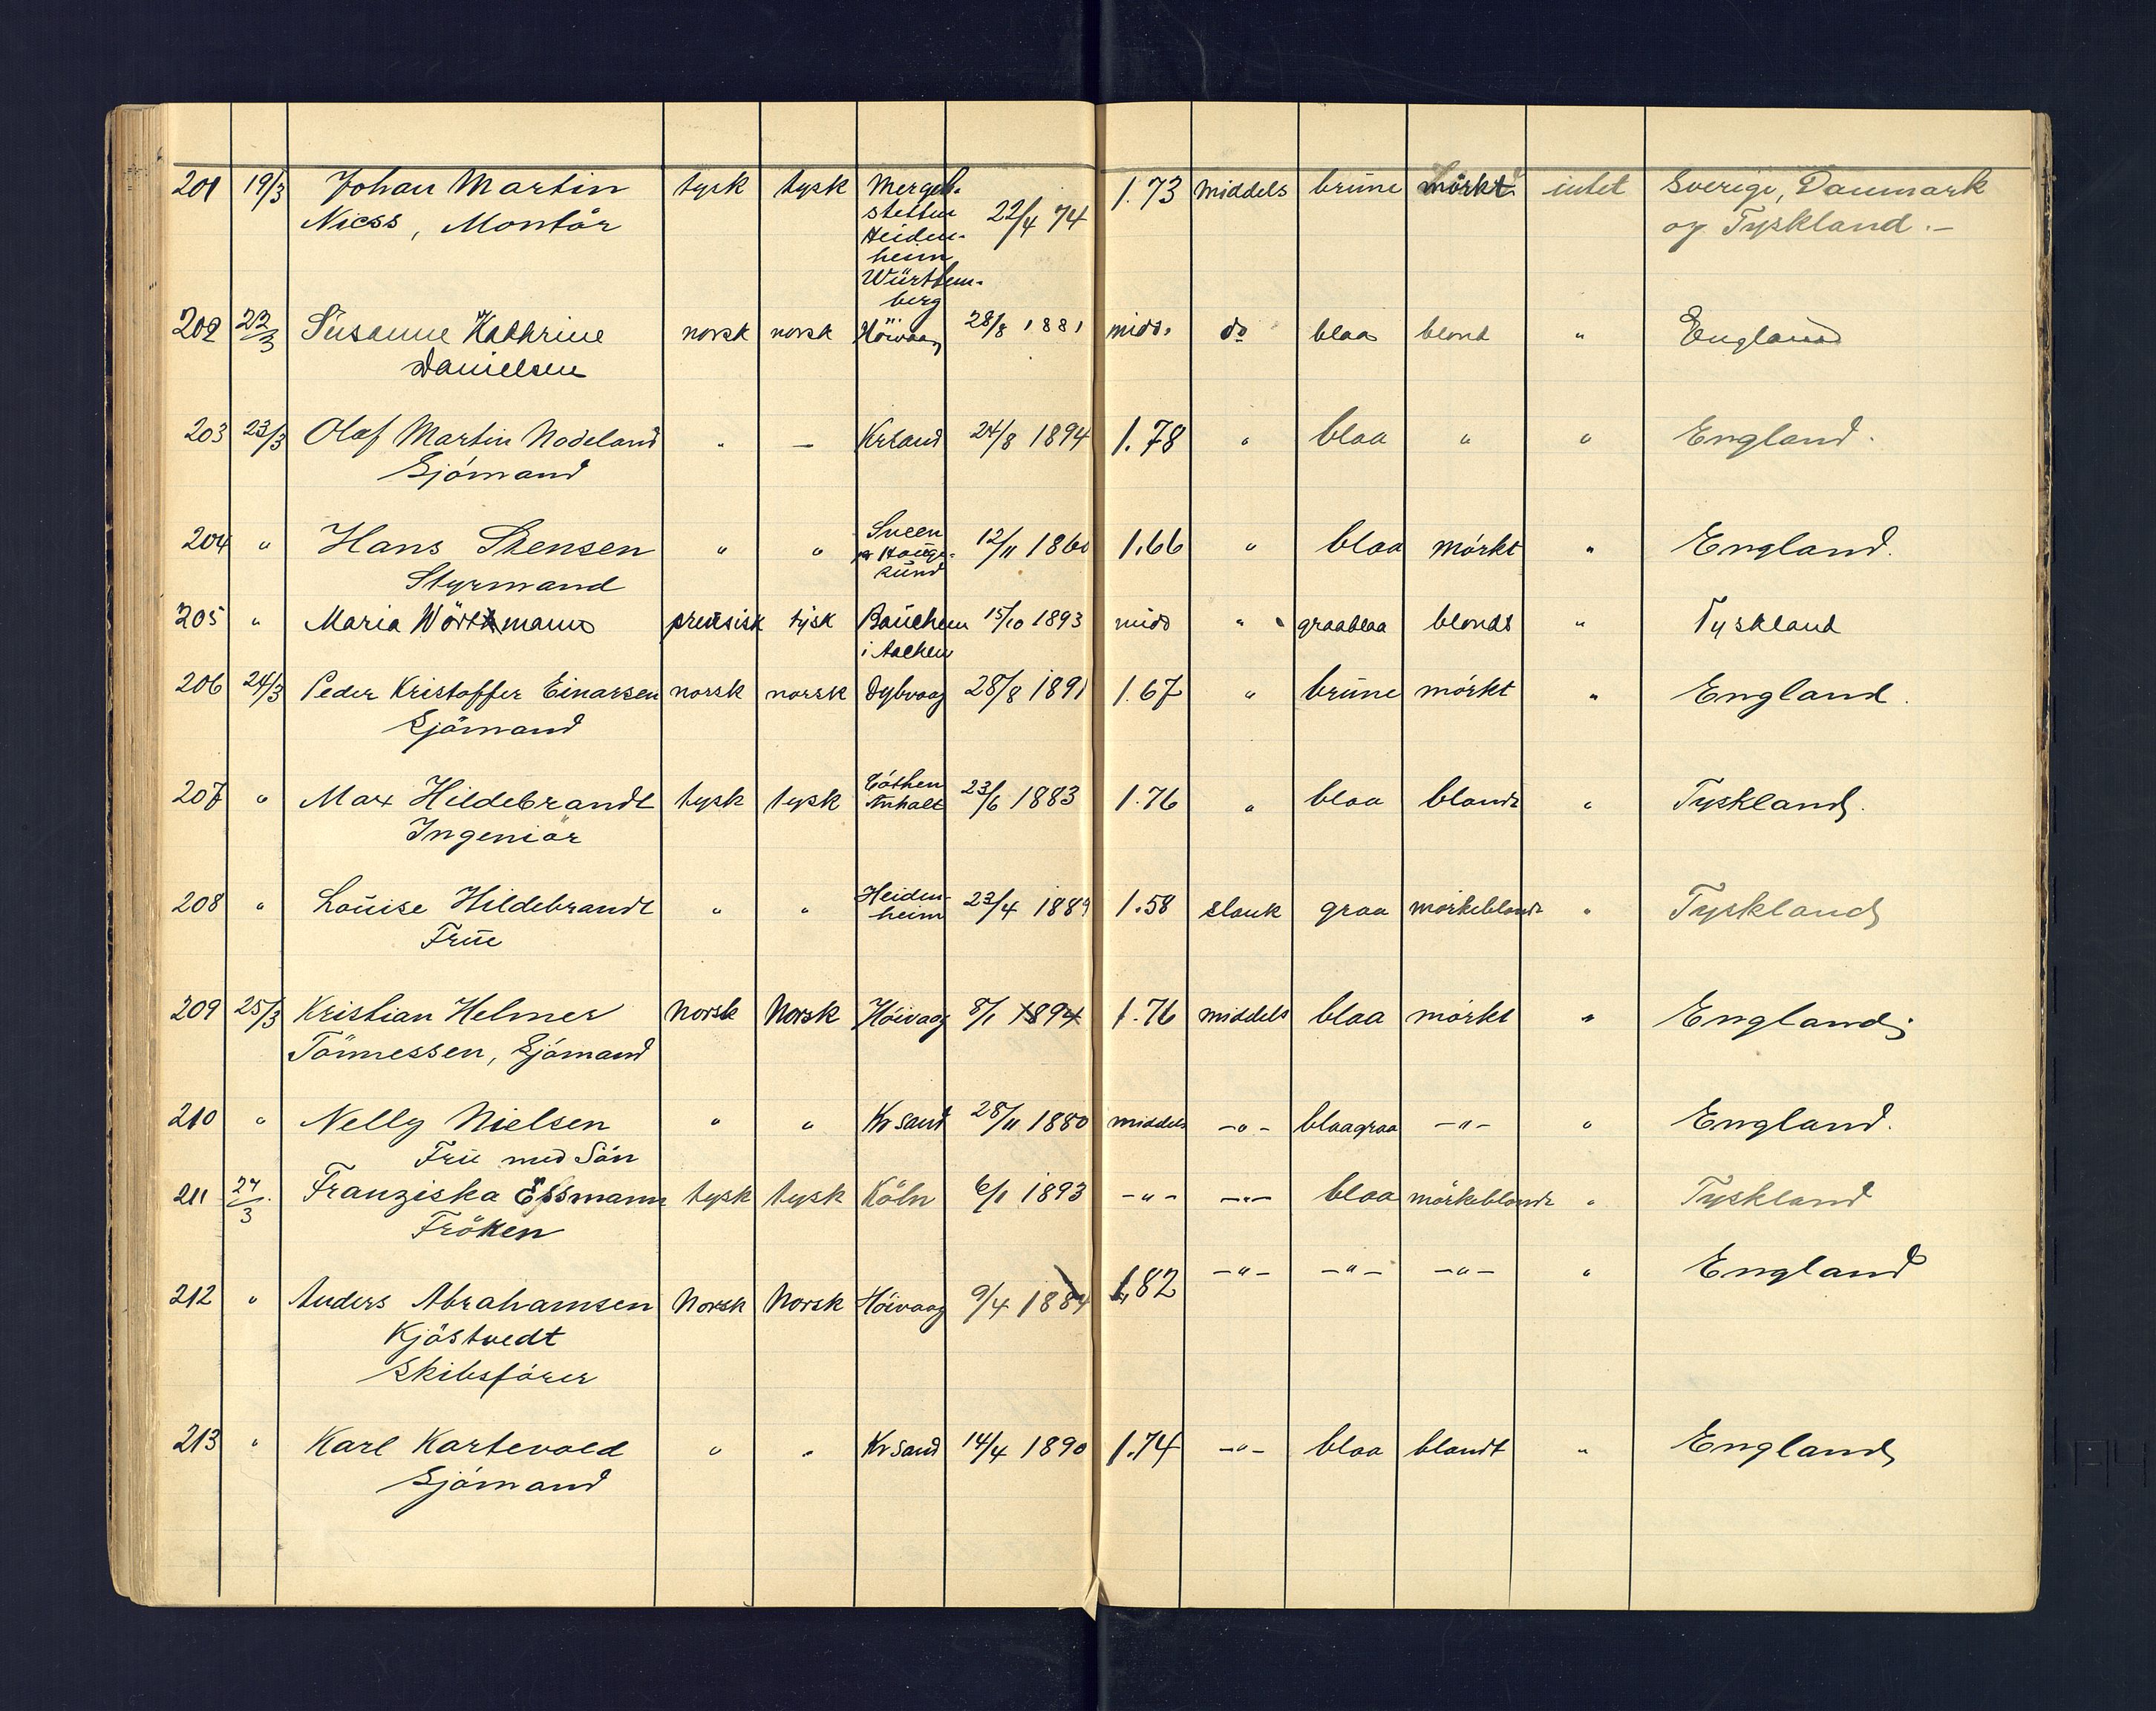 201 19/3 Johan Martin tysk tysk Mergel- 1.73 middels brune mörkt intet Sverige, Danmark
Niess, Montör stetten 22/4 74 og Tyskland.-
Heiden-
heim
Württem-
berg
202 22/3 Susanne Kathrine norsk norsk Höivaag 28/8 1881 midd. do blaa blond " England
Danielsen
203 23/3 Olaf Martin Nodeland " — Krsand 24/8 1894 1.78 " blaa " " England.
Sjömand
204 " Hans Stensen " " Sveen 12/11 1860 1.66 " blaa mörkt " England.
Styrmand pr Hauge-
sund
205 " Maria Wörthmann preusisk tysk 15/10 1893 midd " graablaa blondt " Tyskland
i Aachen
206 24/3 Peder Kristoffer Einarsen norsk norsk Dybvaag 28/8 1891 1.67 " brune mörkt " England.
Sjömand
207 " Max Hildebrandt tysk tysk Cöthen 23/6 1883 1.76 " blaa blondt " Tyskland.
Ingeniör Anhalt
208 " Louise Hildebrandt " " Heiden- 23/4 1889 1.58 slank graa mörkeblondt " Tyskland
Frue heim
209 25/3 Kristian Helmer Norsk Norsk Höivaag 8/1 1894 1.76 middels blaa mörkt " England;
Tönnessen, Sjömand
210 " Nelly Nielsen " " Kr sand 28/11 1880 middels -"- blaagraa -"- " England.
Frue med Sön
211 27/3 Franziska Essmann tysk tysk Köln 6/1 1893 -"- -"- blaa mörkeblondt " Tyskland
Fröken
212 " Anders Abrahamsen Norsk Norsk Höivaag 9/4 1884 1,82 -"- -"- -"- " England
Kjöstvedt
Skibsförer
213 " Karl Kartevold " " Kr sand 14/4 1890 1.74 -"- blaa blondt " England
Sjömand